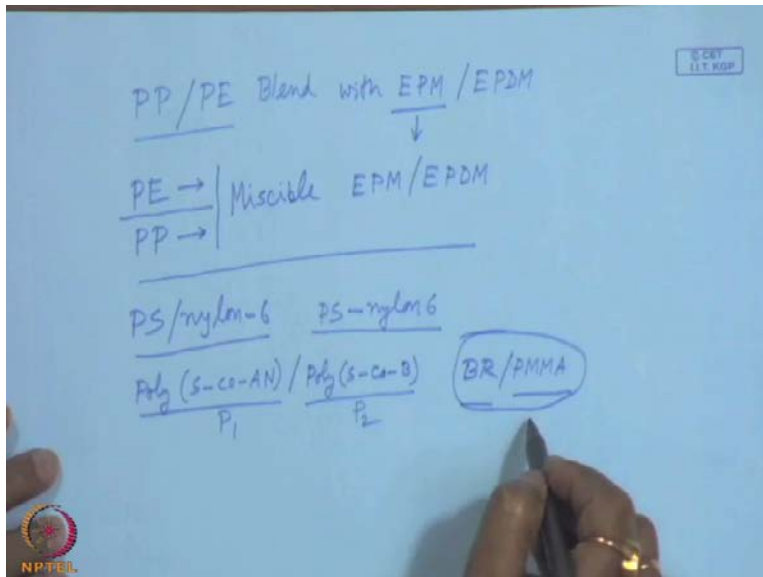 © CET
I.I.T. KGP
PP/PE Blend with EPM/EPDM
↓
PE → Miscible EPM/EPDM
PP →
PS/nylon-6 PS-nylon6
Poly(S-co-AN)/Poly(S-co-B) BR/PMMA
P1 P2
NPTEL